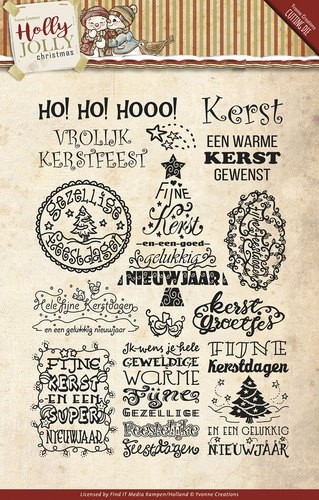 Yvonne Creations
Holly
JOLLY
christmas
HO! HO! HOOO!
Kerst
VROLIJK
KERSTFEEST
EEN WARME
KERST
GEWENST
GEZELLIGE
feestdagen
FIJNE
Kerst
en een goed
gelukkig
NIEUWJAAR
Hele fijne Kerstdagen
en een gelukkig nieuwjaar
kerst
Groetjes
FIJNE
KERST
EN EEN
SUPER
NIEUWJAAR
Ik wens je hele
GEWELDIGE
WARME
Fijne
GEZELLIGE
Feestelijke
feestdagen
FIJNE
Kerstdagen
EN EEN GELUKKIG
NIEUWJAAR
Licensed by Find IT Media Kampen/Holland © Yvonne Creations